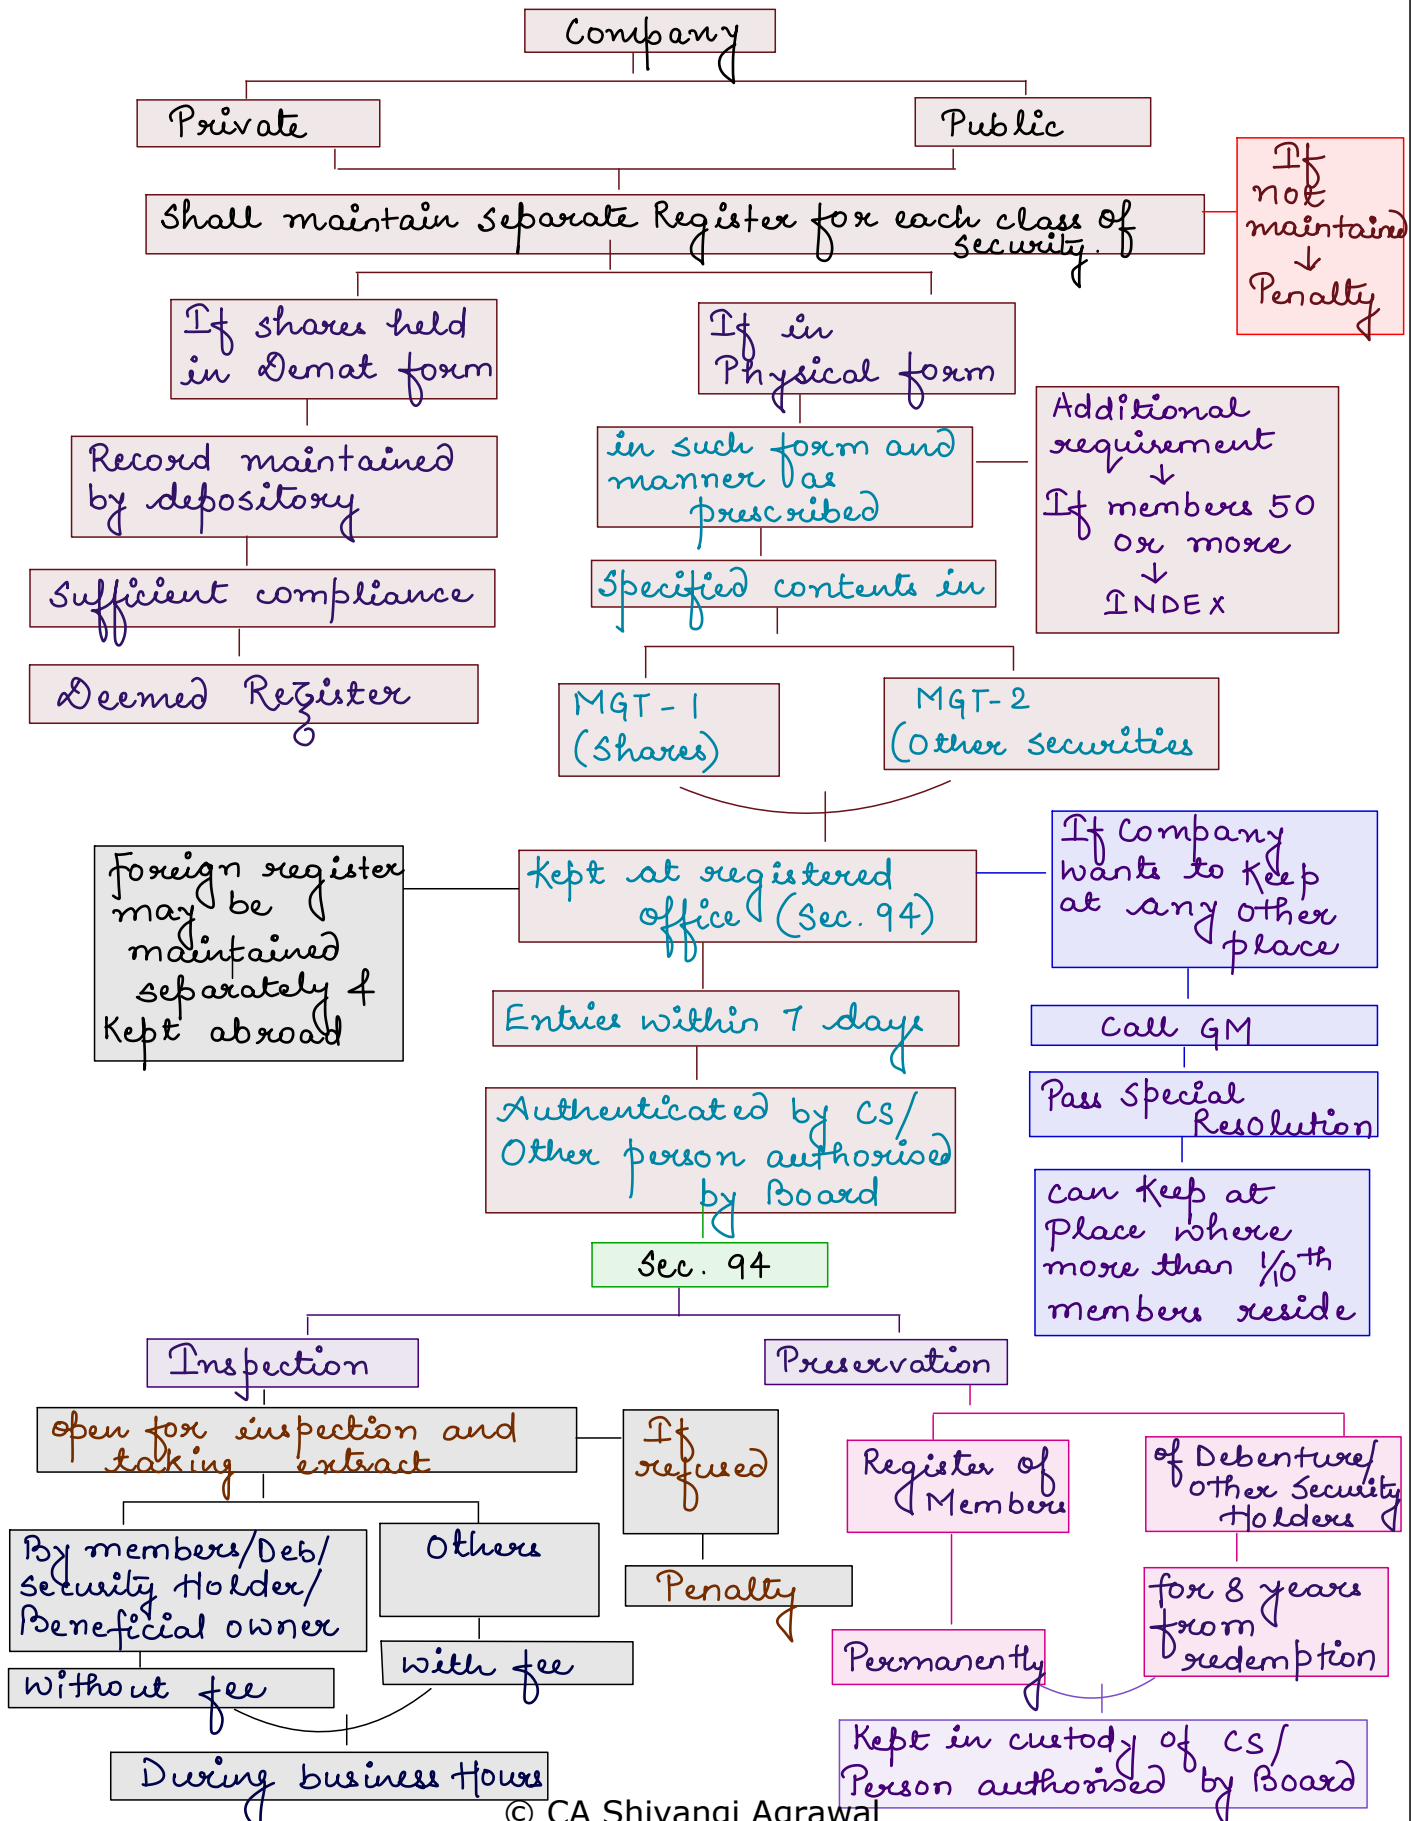 Company
Private
Public
Shall maintain separate Register for each class of
security.
If
not
maintained
↓
Penalty
If shares held
in Demat form
Record maintained
by depository
Sufficient compliance
Deemed Register
If in
Physical form
in such form and
manner as
prescribed
Additional
requirement
↓
If members 50
or more
↓
INDEX
Specified contents in
MGT-1
(Shares)
MGT-2
(Other securities
Foreign register
may be
maintained
separately &
Kept abroad
Kept at registered
office (Sec. 94)
Entries within 7 days
Authenticated by CS/
Other person authorised
by Board
If Company
wants to Keep
at any other
place
Call GM
Pass Special
Resolution
can Keep at
Place where
more than 1/10th
members reside
Sec. 94
Inspection
open for inspection and
taking extract
If
refused
Penalty
By members/Deb/
Security Holder/
Beneficial owner
without fee
Others
with fee
During business Hours
Preservation
Register of
Members
Permanently
of Debenture/
other Security
Holders
for 8 years
from
redemption
Kept in custody of CS/
Person authorised by Board
© CA Shivangi Agrawal